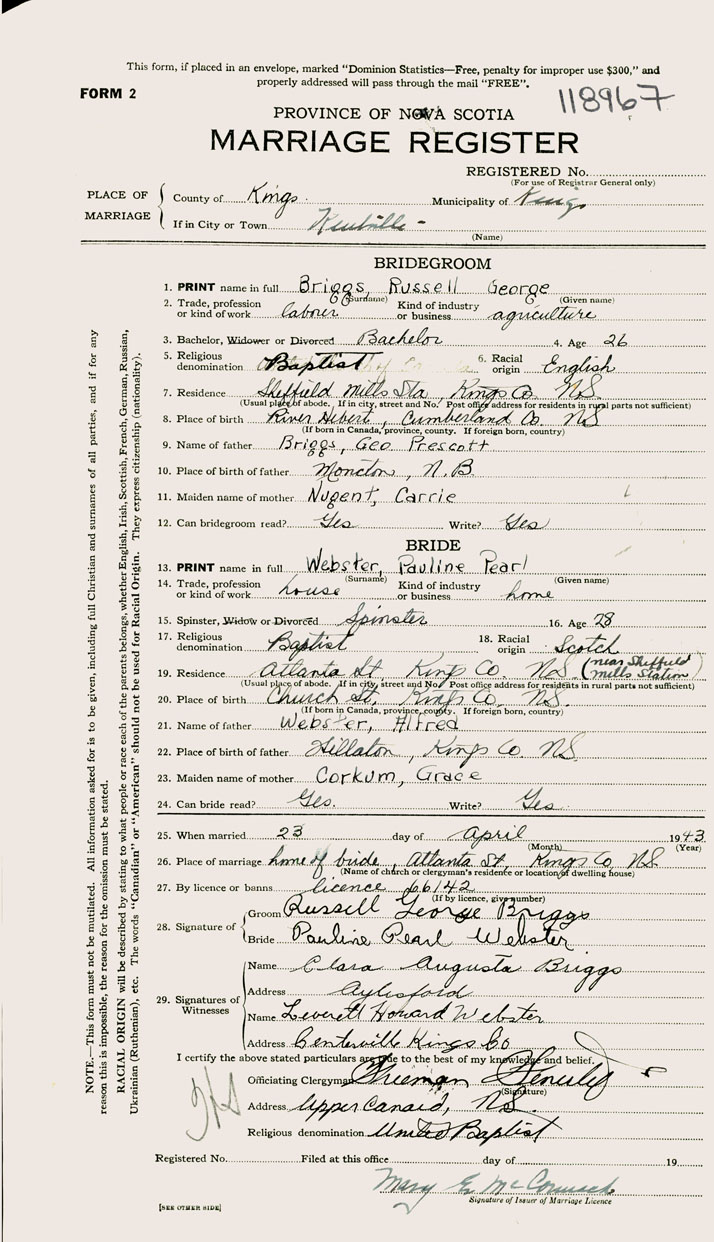 This form, if placed in an envelope, marked "Dominion Statistics—Free, penalty for improper use $300," and
properly addressed will pass through the mail "FREE".
FORM 2
118967
PROVINCE OF NOVA SCOTIA
MARRIAGE REGISTER
REGISTERED No.
(For use of Registrar General only)
PLACE OF MARRIAGE
County of Kings Municipality of Kings
If in City or Town Kentville -
(Name)
BRIDEGROOM
1. PRINT name in full Briggs, Russell George
(Surname) (Given name)
2. Trade, profession or kind of work labourer Kind of industry or business agriculture
3. Bachelor, Widower or Divorced Bachelor 4. Age 26
5. Religious denomination Baptist 6. Racial origin English
7. Residence Sheffield Mills Sta, Kings Co. NS
(Usual place of abode. If in city, street and No. Post office address for residents in rural parts not sufficient)
8. Place of birth River Hebert, Cumberland Co. NS
(If born in Canada, province, county. If foreign born, country)
9. Name of father Briggs, Geo Prescott
10. Place of birth of father Moncton, N.B.
11. Maiden name of mother Nugent, Carrie
12. Can bridegroom read? Yes Write? Yes
BRIDE
13. PRINT name in full Webster, Pauline Pearl
(Surname) (Given name)
14. Trade, profession or kind of work house Kind of industry or business home
15. Spinster, Widow or Divorced Spinster 16. Age 28
17. Religious denomination Baptist 18. Racial origin Scotch
19. Residence Atlanta St Kings Co. NS (near Sheffield Mills Station)
(Usual place of abode. If in city, street and No. Post office address for residents in rural parts not sufficient)
20. Place of birth Church St, Kings Co. NS.
(If born in Canada, province, county. If foreign born, country)
21. Name of father Webster, Alfred
22. Place of birth of father Hillaton, Kings Co NS
23. Maiden name of mother Corkum, Grace
24. Can bride read? Yes. Write? Yes
25. When married 23 day of April 1943
(Month) (Year)
26. Place of marriage home of bride, Atlanta St, Kings Co NS
(Name of church or clergyman's residence or location of dwelling house)
27. By licence or banns licence 66142
(If by licence, give number)
28. Signature of
Groom Russell George Briggs
Bride Pauline Pearl Webster
29. Signatures of Witnesses
Name Clara Augusta Briggs
Address Aylesford
Name Leverett Howard Webster
Address Centerville Kings Co
I certify the above stated particulars are true to the best of my knowledge and belief.
Officiating Clergyman
(Signature)
Address Upper Canard, NS.
Religious denomination United Baptist
Registered No. Filed at this office day of 19
Mary E. McCormack
Signature of Issuer of Marriage Licence
[SEE OTHER SIDE]
NOTE.—This form must not be mutilated. All information asked for is to be given, including full Christian and surnames of all parties, and if for any
reason this is impossible, the reason for the omission must be stated.
RACIAL ORIGIN will be described by stating to what people or race each of the parents belongs, whether English, Irish, Scottish, French, German, Russian,
Ukrainian (Ruthenian), etc. The words "Canadian" or "American" should not be used for Racial Origin. They express citizenship (nationality).